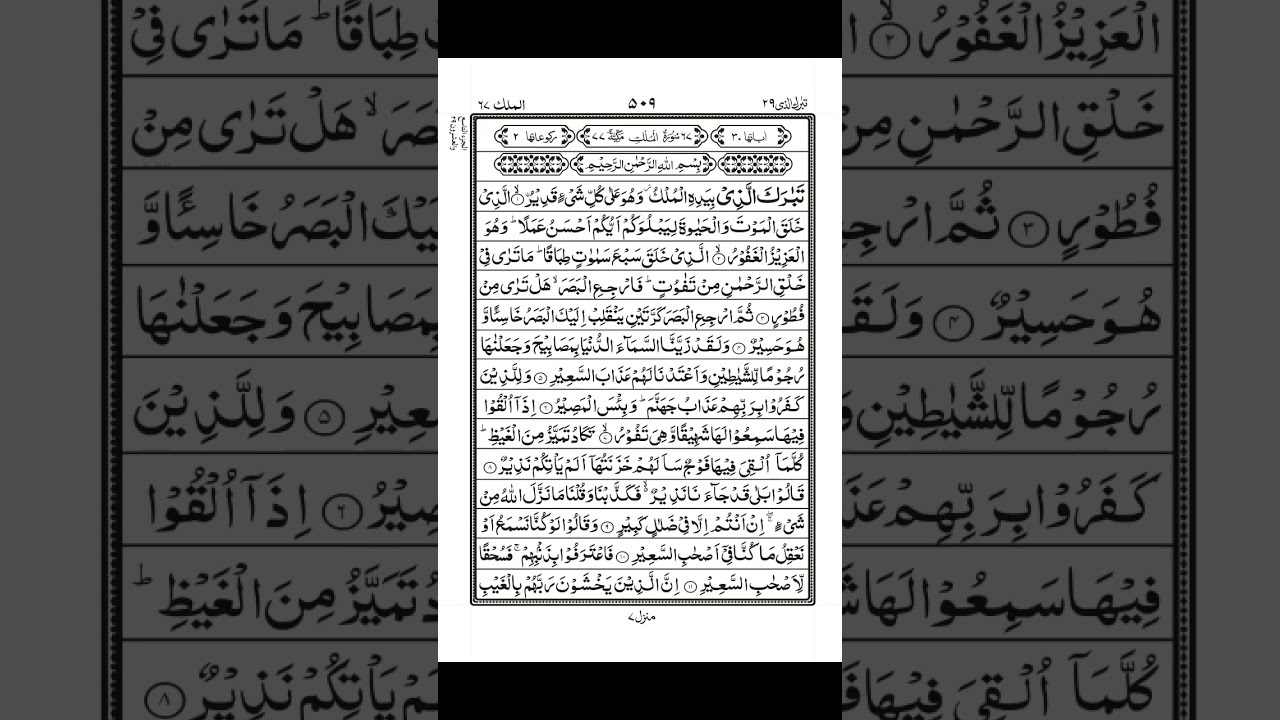 تبٰرك الذی ٢٩ ۵۰۹ الملك ٦٧
الجزء التاسع والعشرون ٢٩
اٰیاتها ٣٠ ٦٧ سُوْرَةُ الْمُلْكِ مَكِّیَّةٌ ٧٧ رکوعاتها ٢
بِسْمِ اللّٰهِ الرَّحْمٰنِ الرَّحِیْمِ
تَبٰرَكَ الَّذِیْ بِیَدِهِ الْمُلْكُ ؗ وَهُوَ عَلٰی كُلِّ شَیْءٍ قَدِیْرُ ۙ﴿۱﴾ الَّذِیْ
خَلَقَ الْمَوْتَ وَالْحَیٰوةَ لِیَبْلُوَكُمْ اَیُّكُمْ اَحْسَنُ عَمَلًا ؕ وَهُوَ
الْعَزِیْزُ الْغَفُوْرُ ۙ﴿۲﴾ الَّذِیْ خَلَقَ سَبْعَ سَمٰوٰتٍ طِبَاقًا ؕ مَا تَرٰی فِیْ
خَلْقِ الرَّحْمٰنِ مِنْ تَفٰوُتٍ ؕ فَارْجِعِ الْبَصَرَ ۙ هَلْ تَرٰی مِنْ
فُطُوْرٍ ﴿۳﴾ ثُمَّ ارْجِعِ الْبَصَرَ كَرَّتَیْنِ یَنْقَلِبْ اِلَیْكَ الْبَصَرُ خَاسِئًا وَّ
هُوَ حَسِیْرٌ ﴿۴﴾ وَلَقَدْ زَیَّنَّا السَّمَآءَ الدُّنْیَا بِمَصَابِیْحَ وَجَعَلْنٰهَا
رُجُوْمًا لِّلشَّیٰطِیْنِ وَاَعْتَدْنَا لَهُمْ عَذَابَ السَّعِیْرِ ﴿۵﴾ وَلِلَّذِیْنَ
كَفَرُوْا بِرَبِّهِمْ عَذَابُ جَهَنَّمَ ؕ وَبِئْسَ الْمَصِیْرُ ﴿۶﴾ اِذَاۤ اُلْقُوْا
فِیْهَا سَمِعُوْا لَهَا شَهِیْقًا وَّهِیَ تَفُوْرُ ۙ﴿۷﴾ تَكَادُ تَمَیَّزُ مِنَ الْغَیْظِ ؕ
كُلَّمَاۤ اُلْقِیَ فِیْهَا فَوْجٌ سَاَلَهُمْ خَزَنَتُهَاۤ اَلَمْ یَاْتِكُمْ نَذِیْرٌ ﴿۸﴾
قَالُوْا بَلٰی قَدْ جَآءَنَا نَذِیْرٌ ۙ۬ فَكَذَّبْنَا وَقُلْنَا مَا نَزَّلَ اللّٰهُ مِنْ
شَیْءٍ ۖۚ اِنْ اَنْتُمْ اِلَّا فِیْ ضَلٰلٍ كَبِیْرٍ ﴿۹﴾ وَقَالُوْا لَوْ كُنَّا نَسْمَعُ اَوْ
نَعْقِلُ مَا كُنَّا فِیْۤ اَصْحٰبِ السَّعِیْرِ ﴿۱۰﴾ فَاعْتَرَفُوْا بِذَنْۢبِهِمْ ۚ فَسُحْقًا
لِّاَصْحٰبِ السَّعِیْرِ ﴿۱۱﴾ اِنَّ الَّذِیْنَ یَخْشَوْنَ رَبَّهُمْ بِالْغَیْبِ
منزل ۷